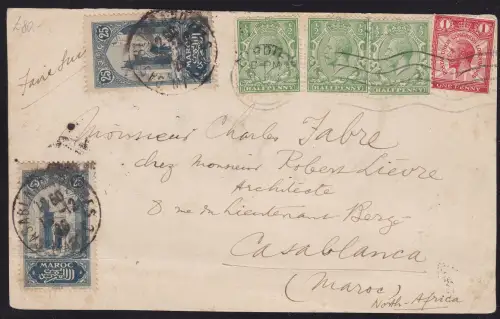 £80-
Faire Suivre
25 MAROC 25
HALFPENNY HALFPENNY HALFPENNY
1 1
ONE PENNY
Monsieur Charles Fabre
chez Monsieur Robert Lièvre
Architecte
8 rue du Lieutenant Berge
Casablanca
(Maroc)
North-Africa
25 25
MAROC